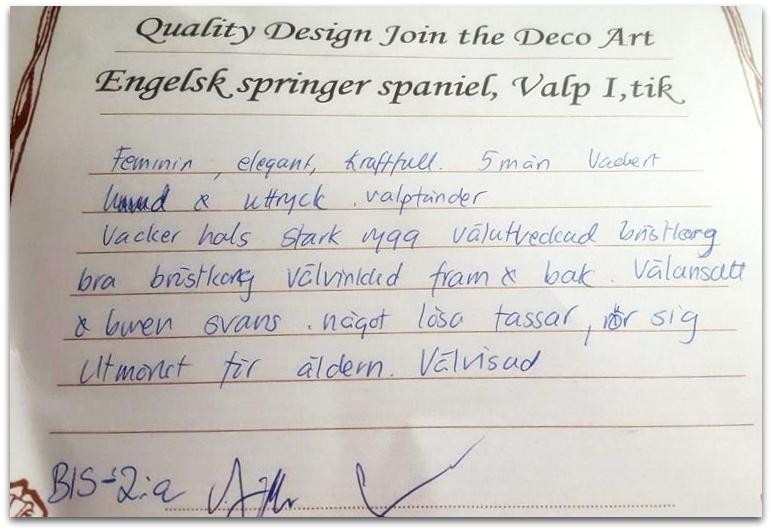 Quality Design Join the Deco Art
Engelsk springer spaniel, Valp I,tik
Feminin, elegant, kraftfull. 5 mån Vackert
huvud & uttryck. valptänder
Vacker hals stark rygg välutvecklad bröstkorg
bra bröstkorg välvinklad fram & bak. Välansatt
& buren svans. något lösa tassar, rör sig
Utmärkt för åldern. Välvisad
BIS-2:a